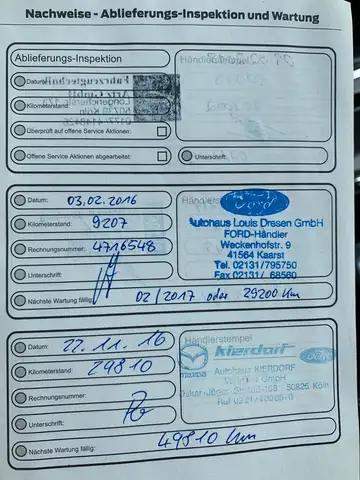 Nachweise - Ablieferungs-Inspektion und Wartung
Ablieferungs-Inspektion
Datum:
Kilometerstand:
Überprüft auf offene Service Aktionen:
Offene Service Aktionen abgearbeitet:
Unterschrift:
Fahrzeugtechnik
Artz GmbH
50739 Köln
Datum: 03.02.2016
Kilometerstand: 9207
Rechnungsnummer: 4716548
Unterschrift:
Nächste Wartung fällig: 02/2017 oder 29200 Km
Händlerstempel
Ford
Autohaus Louis Dresen GmbH
FORD-Händler
Weckenhofstr. 9
41564 Kaarst
Tel. 02131/795750
Fax 02131/ 68560
Datum: 22.11.16
Kilometerstand: 29810
Rechnungsnummer:
Unterschrift:
Nächste Wartung fällig: 49810 Km
Händlerstempel
Kierdorf
mazda
Ford
Autohaus KIERDORF
GmbH
50825 Köln